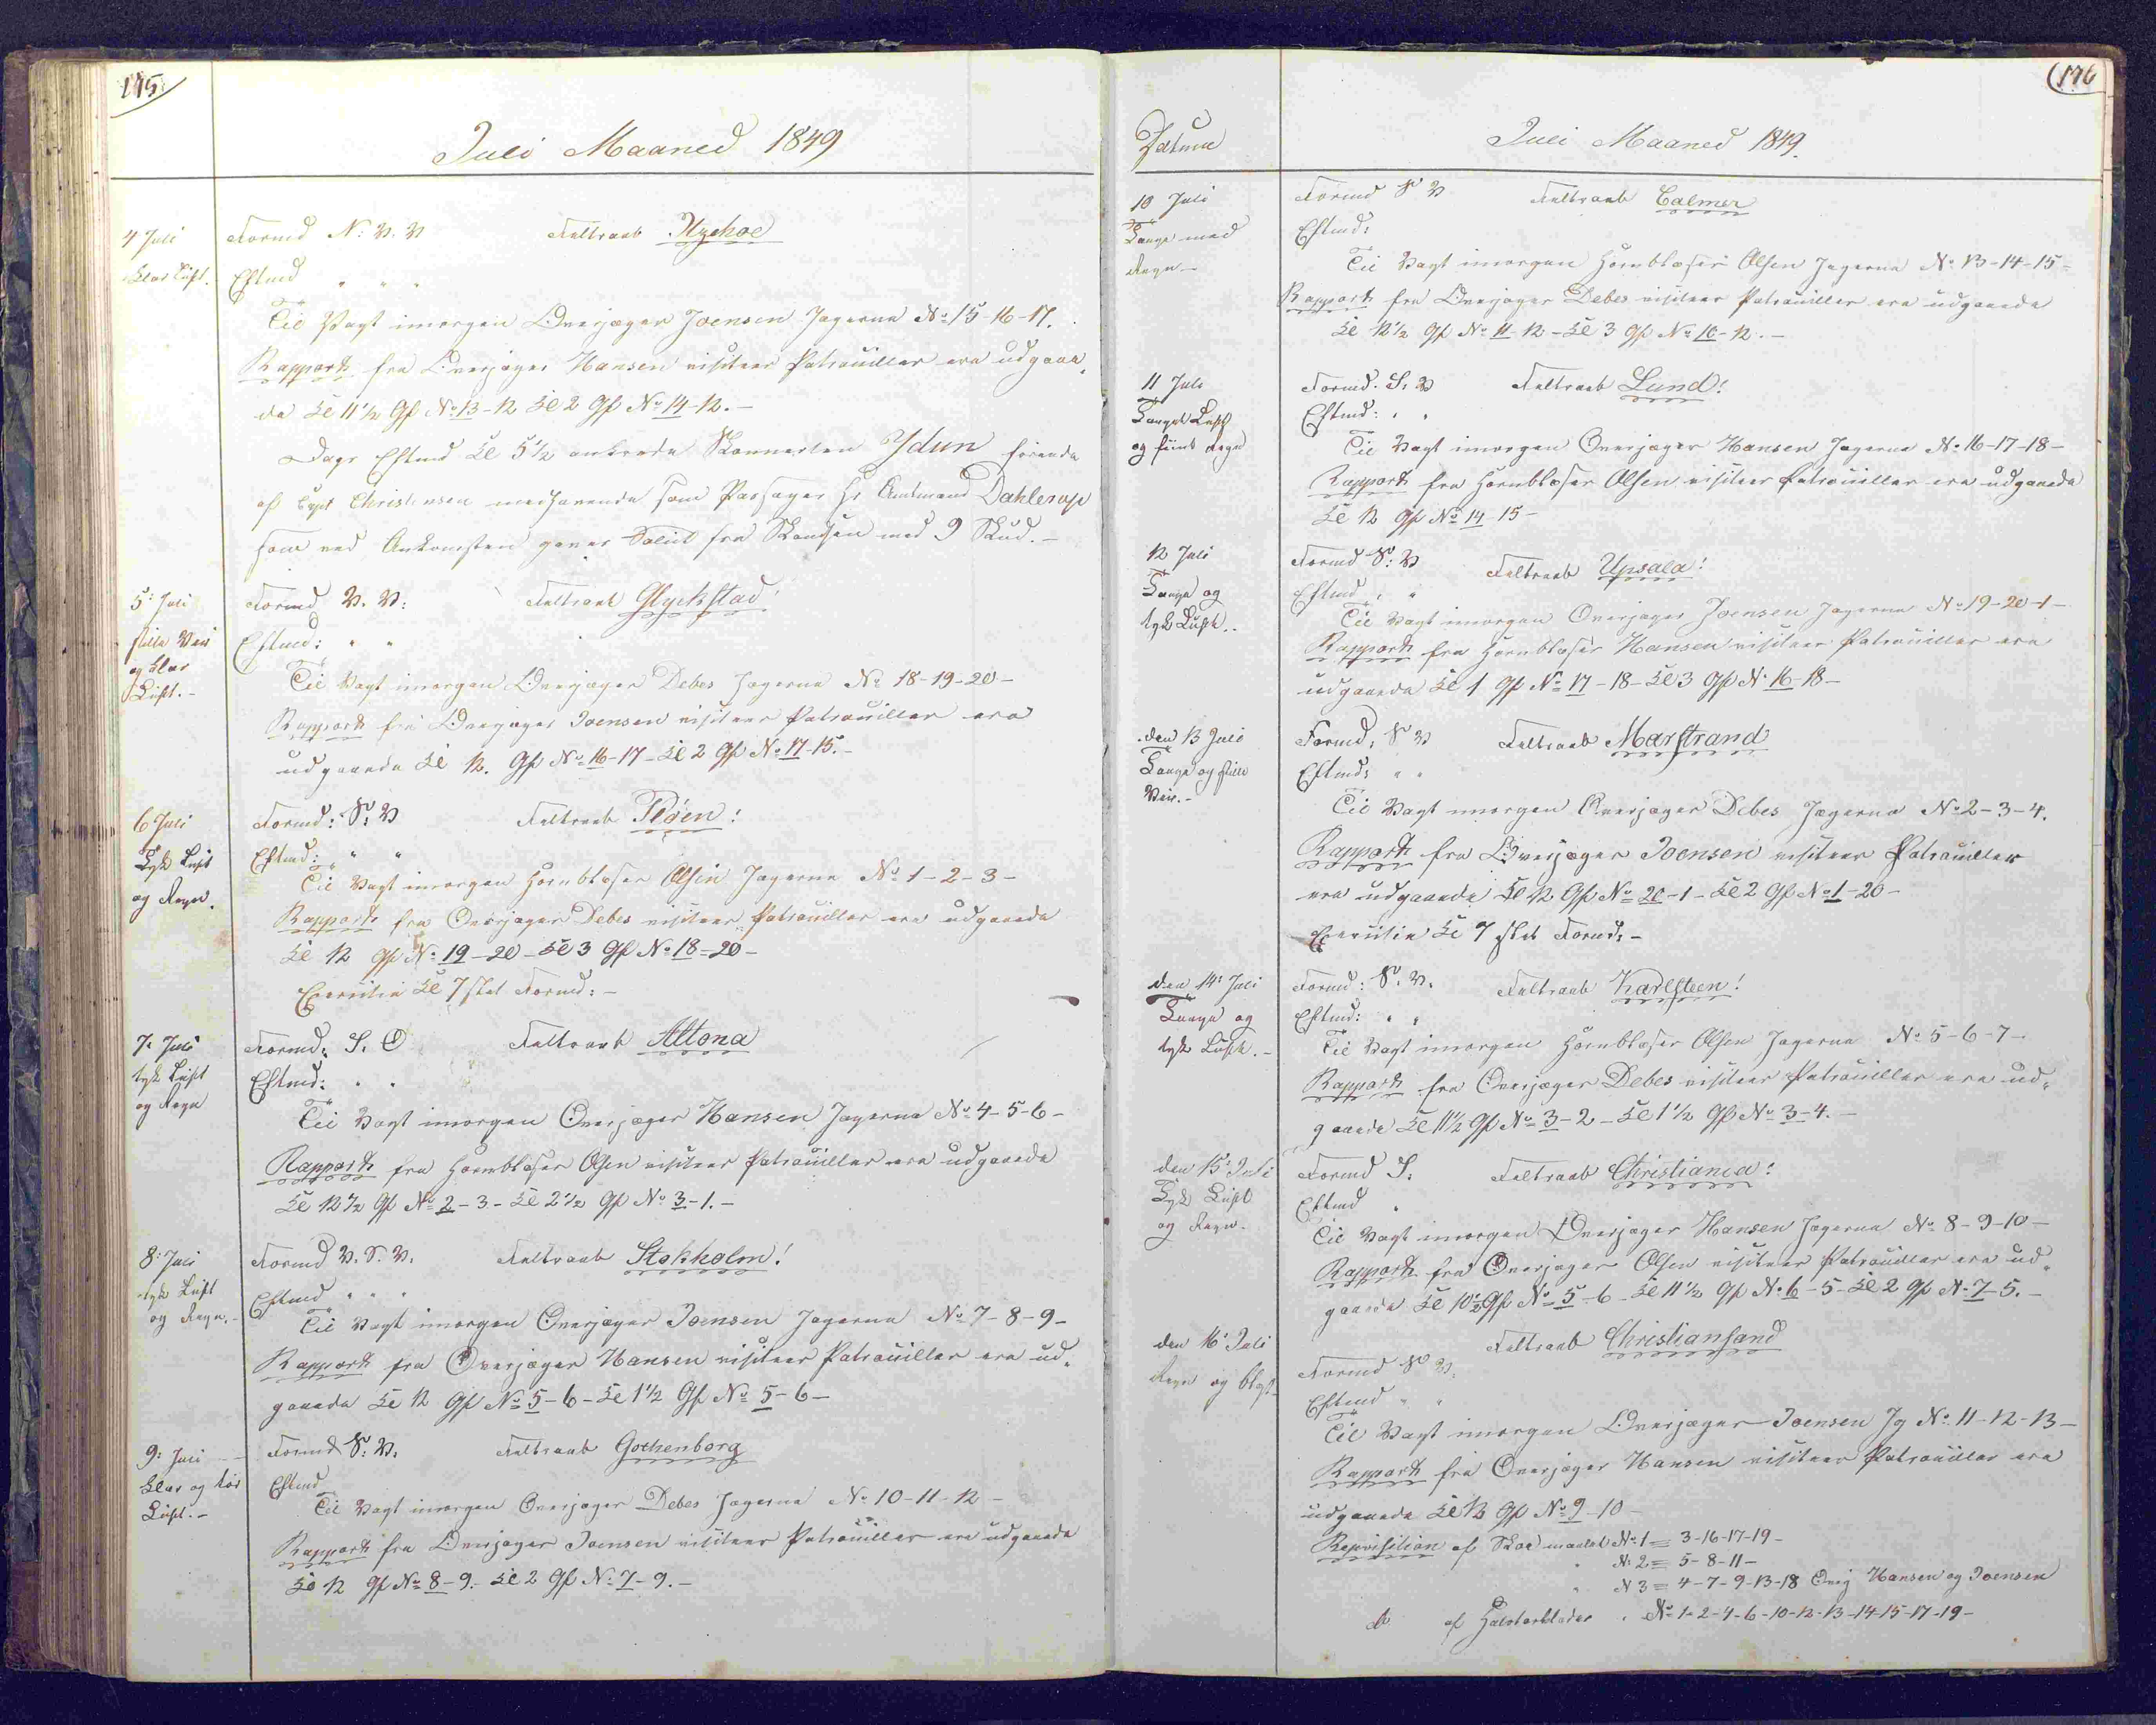 175
Juli Maaned 1849
4 Juli
Klar Luft.
Formd N: V. V Feltraab Itzehoe
Eftmd " " "
Til Vagt imorgen Overjæger Joensen Jægerne No 15-16-17.
Rapport fra Overjæger Hansen visiteer Patrouiller ere udgaae„
de Kl 11½ Gf No 13-12 Kl 2 Gf No 14-12.-
Dags Eftmd Kl 5½ ankrede Skonnerten Ydun førende
af Capt Christensen medhavende som Passager Hr Amtmand Dahlerup
som ved Ankomsten gaves Salut fra Skandsen med 9 Skud.-
5: Juli
stille Veir
og klar
Luft.-
Formd V. V: Feltraab Glyckstad!
Eftmd: " "
Til Vagt imorgen Overjæger Debes Jægerne No 18-19-20-
Rapport fra Overjæger Joensen visiteer Patrouiller ere
udgaaede Kl 12. Gf No 16-17- Kl 2 Gf No 17-15.-
6 Juli
Tyk Luft
og Regn.
Formd: S: V Feltraab Pløen!
Eftmd: " "
Til Vagt imorgen Hornblæser Olsen Jægerne No 1-2-3-
Rapport fra Overjæger Debes visiteer Patrouiller ere udgaaede
Kl 12 Gf No 19-20- Kl 3 Gf No 18-20-
Exersitie Kl 7 slet Formd:-
7: Juli
tyk Luft
og Regn
Formd: S. O Feltraab Altona
Eftmd: " "
Til Vagt imorgen Overjæger Hansen Jægerne No 4-5-6-
Rapport fra Hornblæser Olsen visiteer Patrouiller ere udgaaede
Kl 12½ Gf No 2-3- Kl 2½ Gf No 3-1.-
8: Juli
tyk Luft
og Regn.-
Formd V. S. V. Feltraab Stokholm!
Eftmd " " "
Til Vagt imorgen Overjæger Joensen Jægerne No 7-8-9-
Rapport fra Overjæger Hansen visiteer Patrouiller ere ud„
gaaede Kl 12 Gf No 5-6- Kl 1½ Gf No 5-6-
9: Juli
Klar og tør
Luft.-
Formd S: V. Feltraab Gothenborg
Eftmd
Til Vagt imorgen Overjæger Debes Jægerne No 10-11-12-
Rapport fra Overjæger Joensen visiteer Patrouiller ere udgaaede
Kl 12 Gf No 8-9.- Kl 2 Gf No 7-9.-
176
Datum
Juli Maaned 1849.
10 Juli
Taage med
Regn-
Formd S V Feltraab Calmer
Eftmd:
Til Vagt imorgen Hornblæser Olsen Jægerne No 13-14-15-
Rapport fra Overjæger Debes visiteer Patrouiller ere udgaaede
Kl 12½ Gf No 11-12- Kl 3 Gf No 10-12.-
11 Juli
Taaget Luft
og fiint Regn
Formd. S. V Feltraab Lund!
Eftmd: " "
Til Vagt imorgen Overjæger Hansen Jægerne No 16-17-18-
Rapport fra Hornblæser Olsen visiteer Patrouiller ere udgaaede
Kl 12 Gf No 14-15-
12 Juli
Taage og
tyk Luft.-
Formd S: V Feltraab Upsala!
Eftmd " "
Til Vagt imorgen Overjæger Joensen Jægerne No 19-20-1-
Rapport fra Hornblæser Hansen visiteer Patrouiller ere
udgaaede Kl 1 Gf No 17-18- Kl 3 Gf N: 16-18-
den 13 Juli
Taage og stille
Veir.-
Formd: S V Feltraab Marstrand
Eftmd: " "
Til Vagt imorgen Overjæger Debes Jægerne No 2-3-4.
Rapport fra Overjæger Joensen visiteer Patrouiller
ere udgaaede Kl 12 Gf No 20-1- Kl 2 Gf No 1-20-
Exersitie Kl 7 slet Formd:-
den 14: Juli
Taage og
tyk Luft.-
Formd: S. V. Feltraab Karlsteen!
Eftmd: " "
Til Vagt imorgen Hornblæser Olsen Jægerne No 5-6-7-
Rapport fra Overjæger Debes visiteer Patrouiller ere ud„
gaaede Kl 11½ Gf No 3-2- Kl 1½ Gf No 3-4.-
den 15: Juli
Tyk Luft
og Regn.
Formd S: Feltraab Christiania!
Eftmd "
Til Vagt imorgen Overjæger Hansen Jægerne No 8-9-10-
Rapport fra Overjæger Olsen visiteer Patrouiller ere ud„
gaaede Kl 10½ Gf No 5-6- Kl 11½ Gf No 6-5- Kl 2 Gf No 7-5.-
den 16: Juli
Regn og blæst-
Feltraab Christiansand
Formd S V.
Eftmd " "
Til Vagt imorgen Overjæger Joensen Jg No 11-12-13-
Rapport fra Overjæger Hansen visiteer Patrouiller ere
udgaaede Kl 12 Gf No 9-10-
Reqvisition af Skoe maalet No 1 = 3-16-17-19-
" No 2 = 5-8-11-
" N 3 = 4-7-9-13-18 Overj Hansen og Joensen
do af No 1-2-4-6-10-12-13-14-15-17-19-